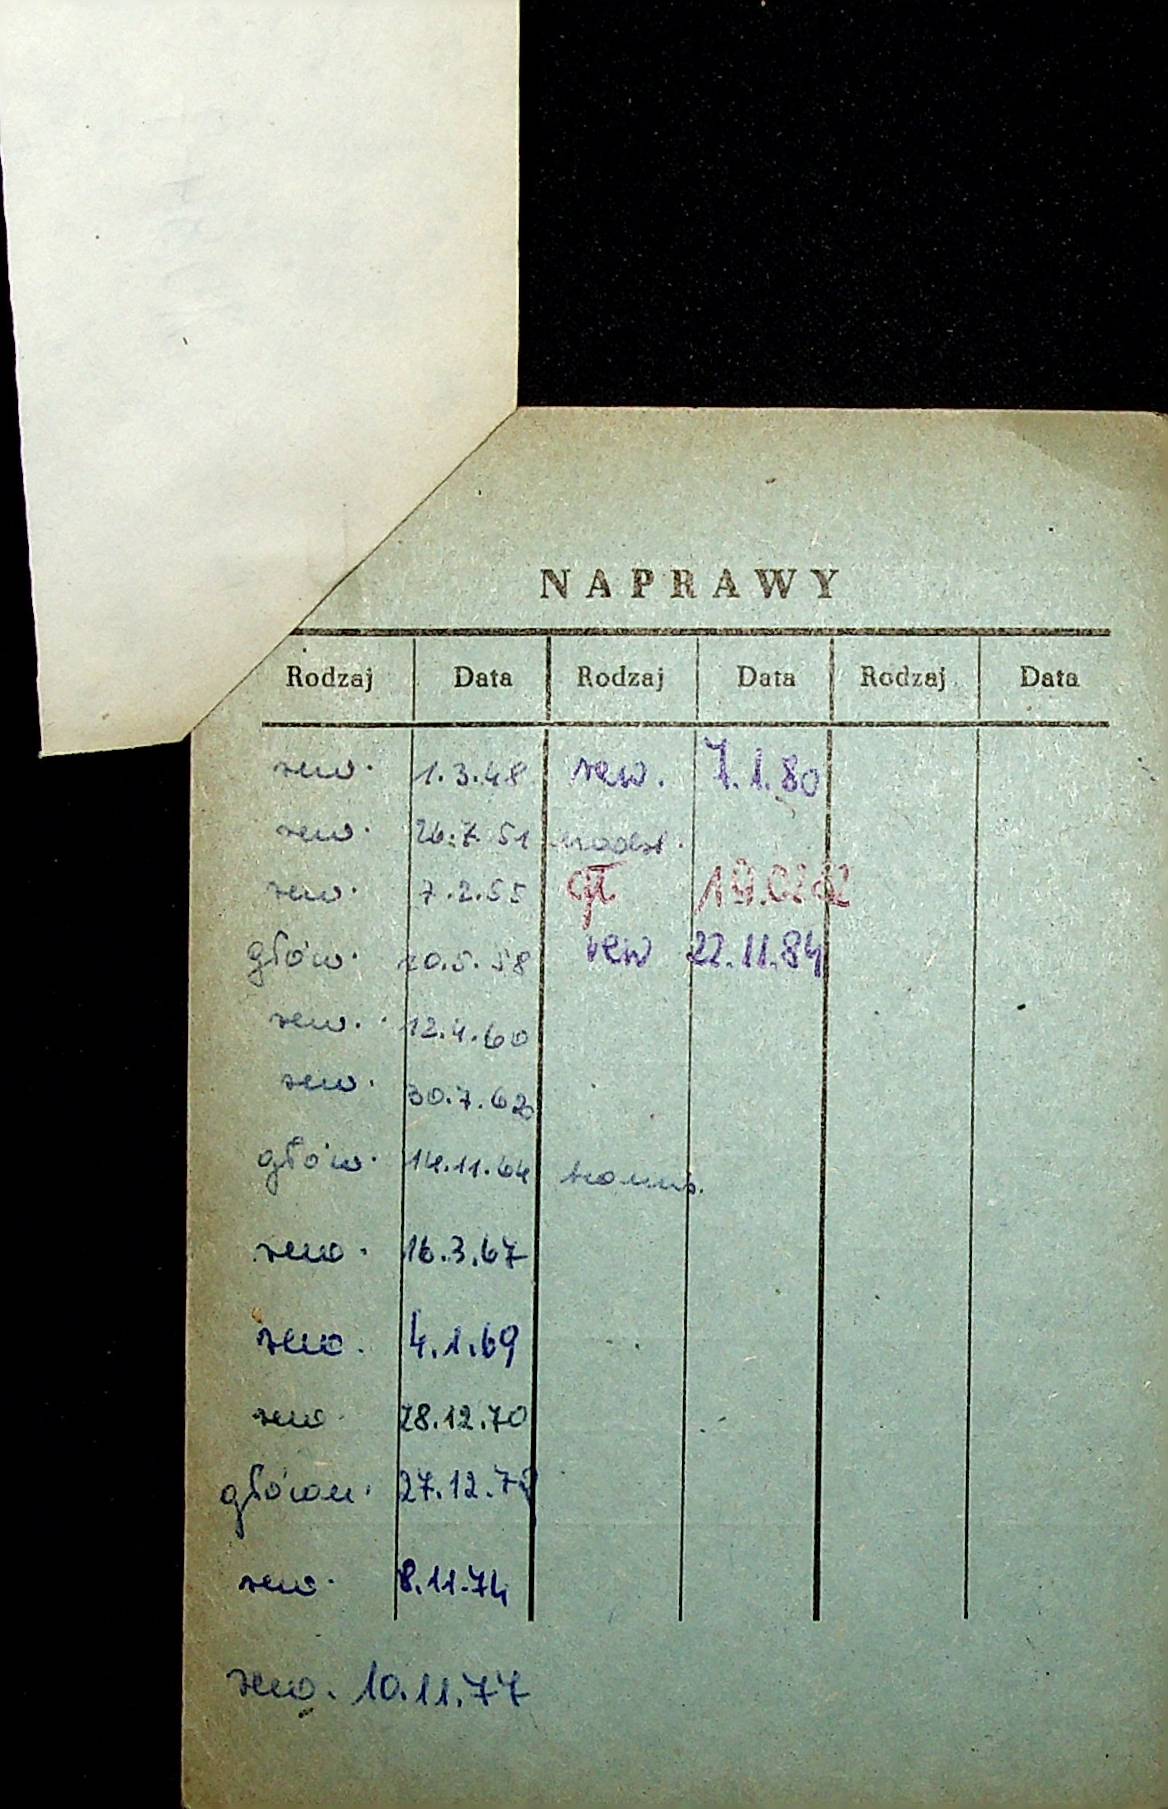 NAPRAWY
Rodzaj Data Rodzaj Data Rodzaj Data
rew. 1.3.48 rew. 7.1.80
rew. 26.7.51
rew. 7.2.55 gł 19.02.82
głów. 20.5.58 rew 22.11.84
rew. 12.4.60
rew. 30.7.62
głów. 14.11.64
rew. 16.3.67
rew. 4.1.69
rew. 28.12.70
główn. 27.12.72
rew. 8.11.74
rew. 10.11.77